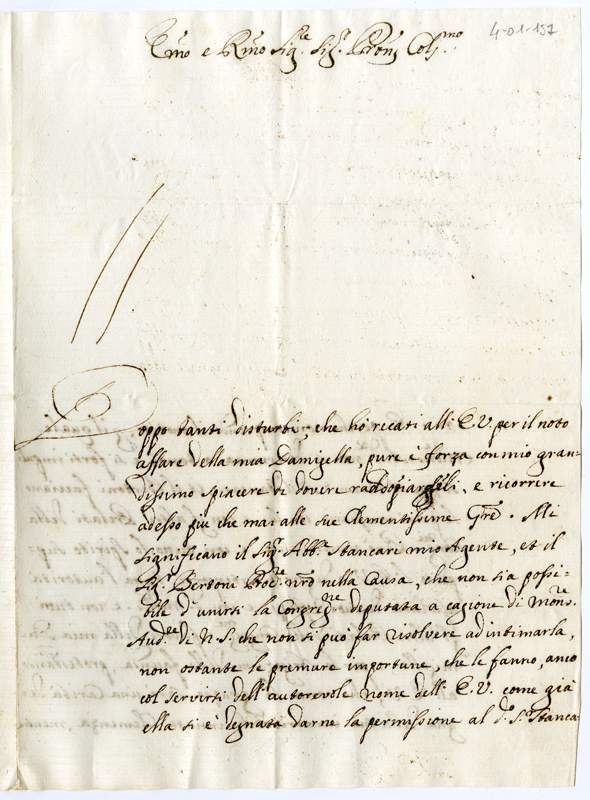 Em̃o e Rm̃o Sig.re Sig.r Prõn Col.mo
4-01-157
Doppo tanti disturbi, che hò recati all: E.V. per il noto
affare della mia Damigella, pure è forza con mio gran-
dissimo spiacere di dovere raddoppiargheli, e ricorrere
adesso più che mai alle sue Clementissime Gr̃e. Mi
significano il Sig.r Abb.e Stancari mio Agente, et il
Sig.r Bertoni Proc.re nrõ nella Causa, che non sia possi-
bile d'unirsi la Congreg.ne deputata a cagione di Mons.re
Aud.re di N.S. che non si può far risolvere ad intimarla,
non ostante le premure importune, che le fanno, anco
col servirsi dell'autorevole nome dell: E.V. come già
ella si è degnata darne la permissione al d.o S.r Stanca-